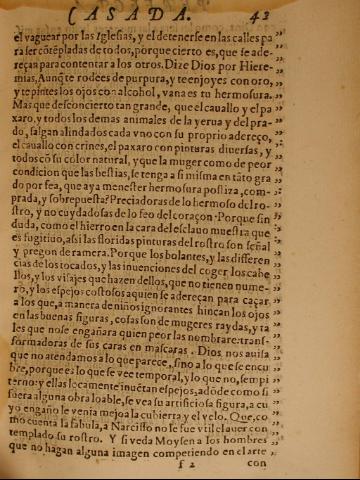 CASADA. 43
el vaguear por las Iglesias, y el detenerse en las calles pa
ra ser cõtẽpladas de todos, porque cierto es, que se ade-
reçan para contentar a los otros. Dize Dios por Hiere-
mias, Aunq̃ te rodees de purpura, y te enjoyes con oro,
y te pintes los ojos con alcohol, vana es tu hermosura.
Mas que desconcierto tan grande, que el cauallo y el pa
xaro, y todos los demas animales de la yerua y del pra-
do, salgan alindados cada vno con su proprio adereço,
el cauallo con crines, el paxaro con pinturas diuersas, y
todos cõ su color natural, y que la muger como de peor
condicion que las bestias, se tenga a si misma en tãto gra
do por fea, que aya menester hermosura postiza, com-
prada, y sobrepuesta? Preciadoras de lo hermoso del ro-
stro, y no cuydadosas de lo feo del coraçon. Porque sin
duda, como el hierro en la cara del esclauo muestra que
es fugitiuo, assi las floridas pinturas del rostro son señal
y pregon de ramera. Porque los bolantes, y las differen
cias de los tocados, y las inuenciones del coger los cabe
llos, y los visajes que hazen dellos, que no tienen nume-
ro, y los espejos costosos a quien se adereçan para caçar
a los que, a manera de niños ignorantes hincan los ojos
en las buenas figuras, cosas son de mugeres raydas, y ta
les que no se engañara quien peor las nombrare: trans-
formadoras de sus caras en mascaras. Dios nos auisa
que no atendamos a lo que parece, sino a lo que se encu
bre, porque es lo que se vee temporal, y lo que no, sempi
terno: y ellas locamente inuẽtan espejos, adõde como si
fuera alguna obra loable, se vea su artificiosa figura, a cu
yo engaño le venia mejor la cubierta y el velo. Que, co
mo cuenta la fabula, a Narcisso no le fue vtil el auer con
templado su rostro. Y si veda Moysen a los hombres
que no hagan alguna imagen competiendo en el arte
f 2 con